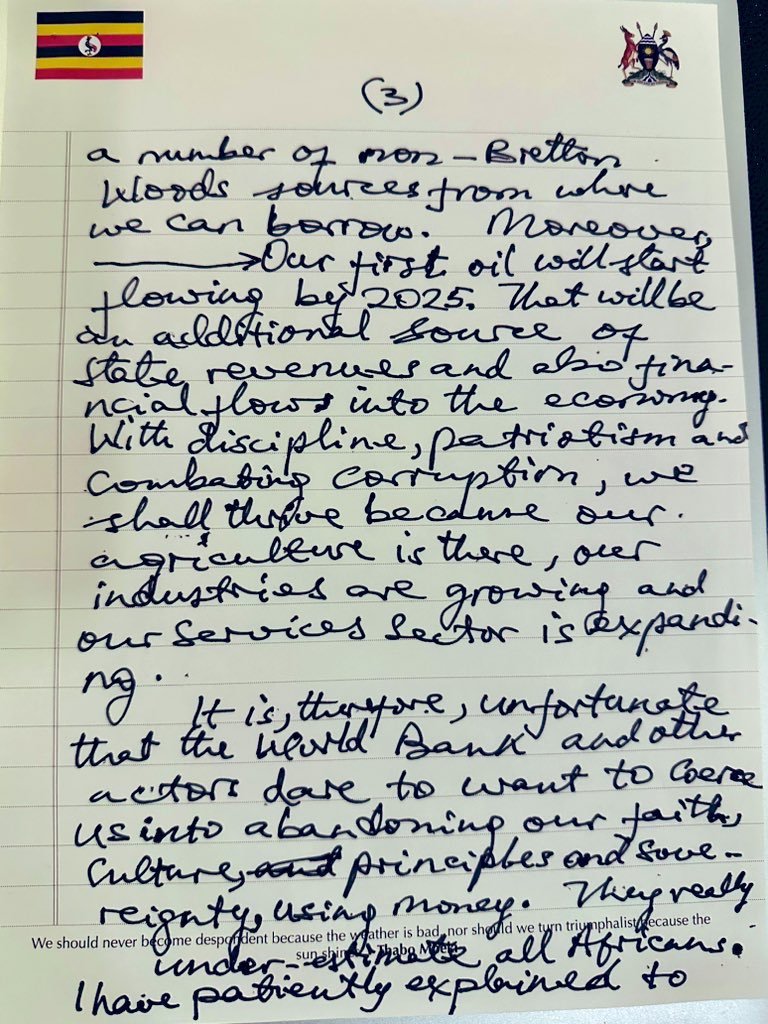 (3)
a number of non-Bretton
Woods sources from where
we can borrow. Moreover,
Our first oil will start
flowing by 2025. That will be
an additional source of
state revenues and also fina-
ncial flows into the economy.
With discipline, patriotism and
Combating corruption, we
shall thrive because our
agriculture is there, our
industries are growing and
our services sector is expandi-
ng.
It is, therefore, unfortunate
that the World Bank and other
actors dare to want to coerce
us into abandoning our faith,
Culture, and principles and sove-
reignty, using money. They really
We should never become despondent because the weather is bad, nor should we turn triumphalist because the
sun shines - Thabo Mbeki
under-estimate all Africans.
I have patiently explained to